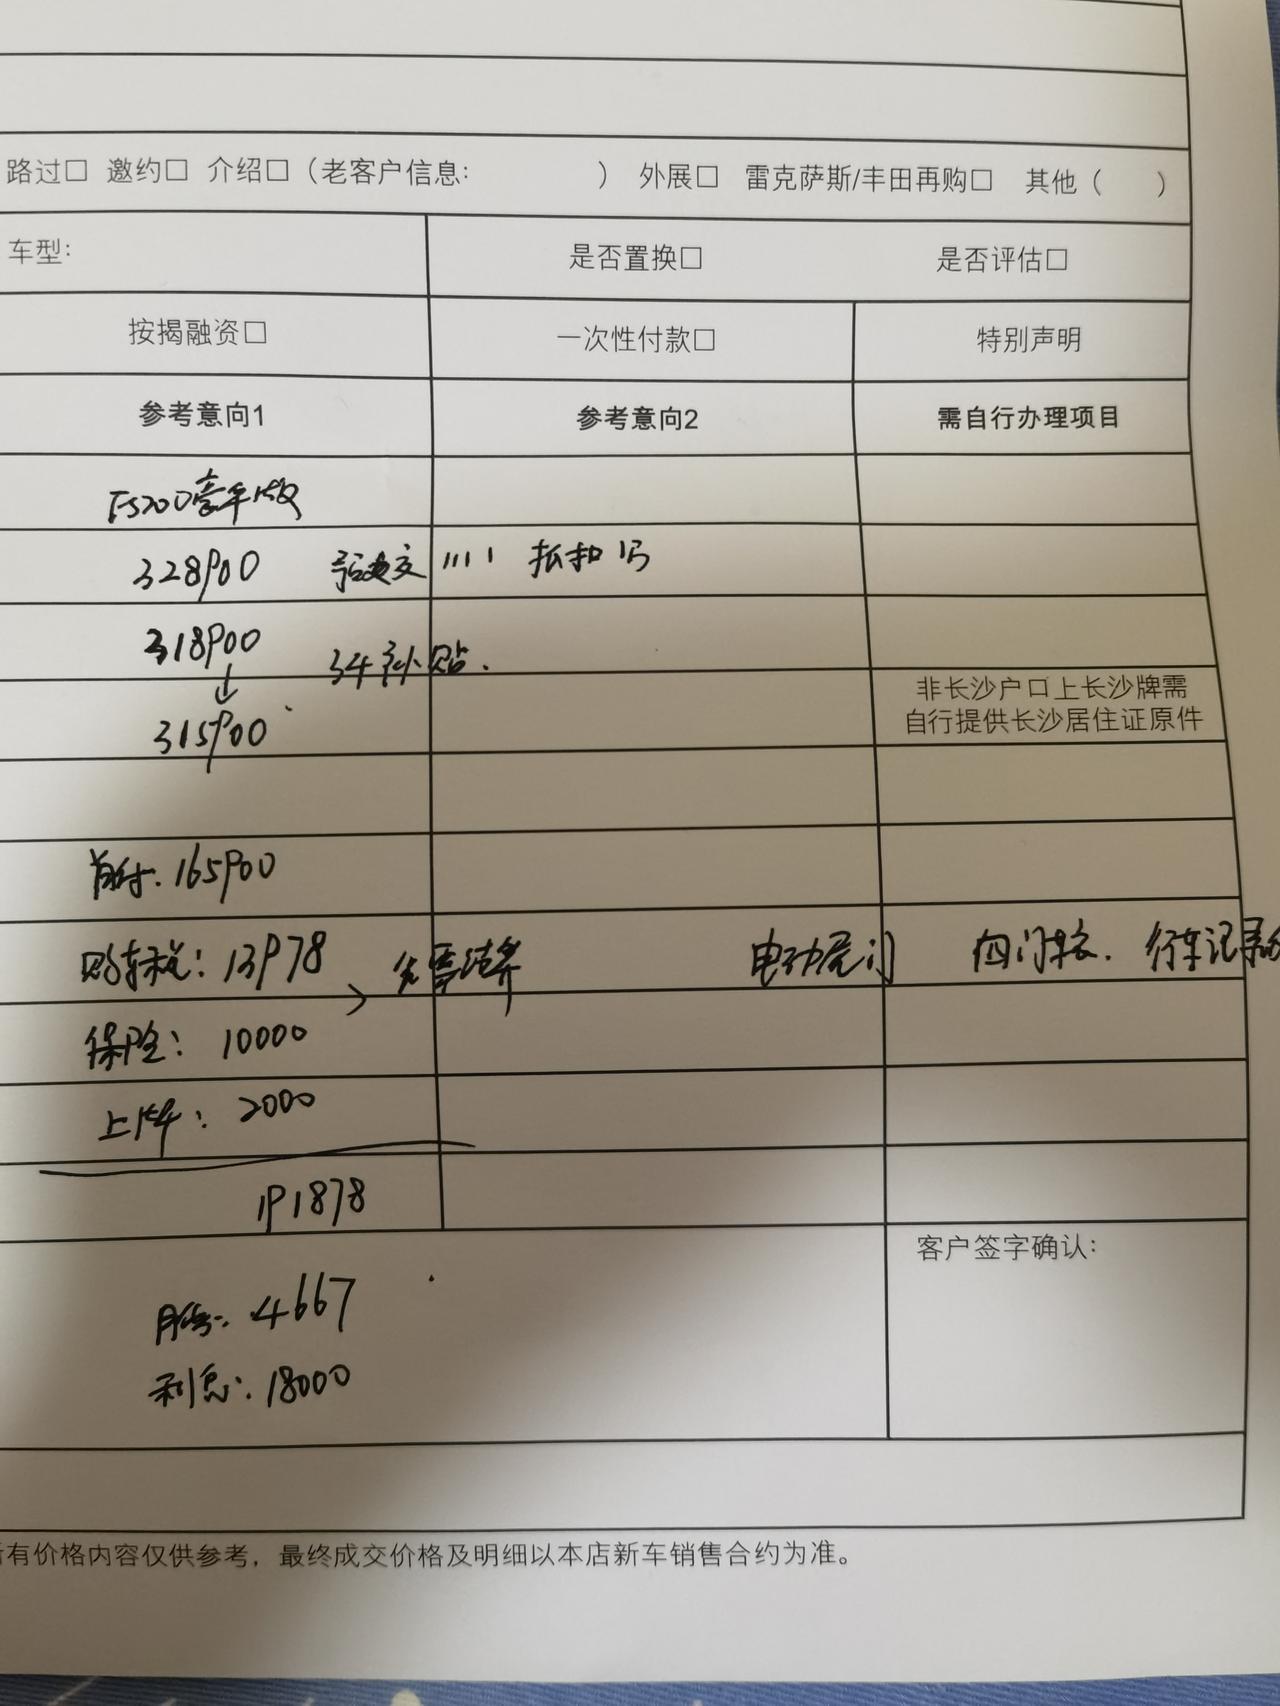 路过□ 邀约□ 介绍□（老客户信息: ） 外展□ 雷克萨斯/丰田再购□ 其他（ ）
车型: 是否置换□ 是否评估□
按揭融资□ 一次性付款□ 特别声明
参考意向1 参考意向2 需自行办理项目
ES200豪华版
328900 1111 抵扣1万
318900 3千补贴.
↓
315900
非长沙户口上长沙牌需
自行提供长沙居住证原件
首付: 165900
购车税: 13978 电动尾门 四门 行车记录
保险: 10000
上牌: 2000
191878
客户签字确认:
月供: 4667
利息: 18000
所有价格内容仅供参考，最终成交价格及明细以本店新车销售合约为准。